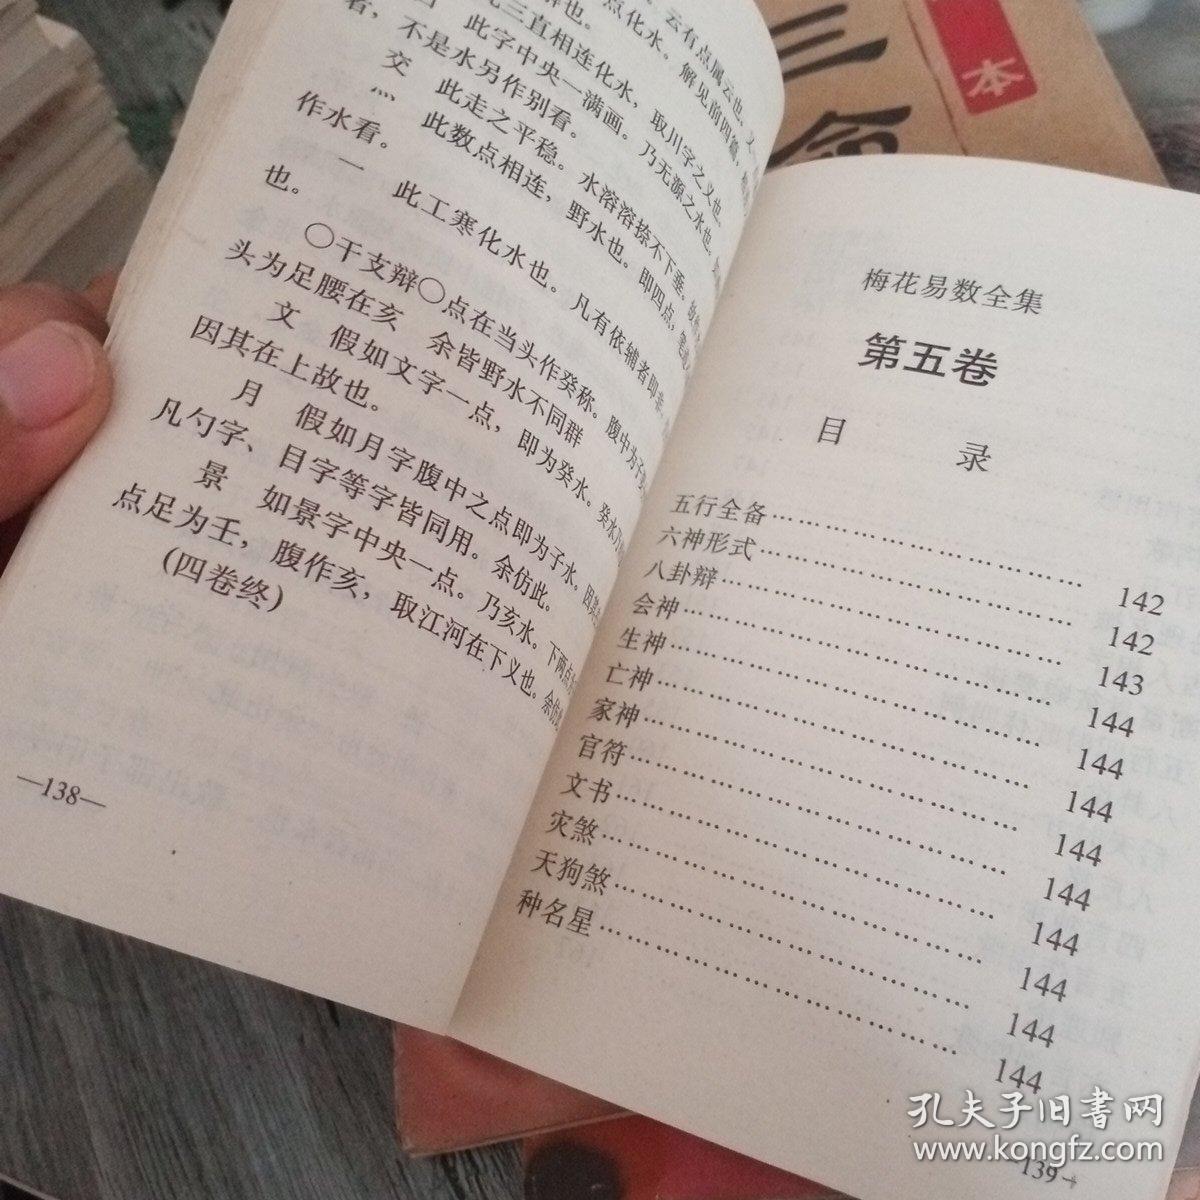 云有点属云也。
点化水。解见前四篇，
此三直相连化水，取川字之义也。
此字中央一满画。乃无源之水也。
者，不是水另作别看。
交 此走之平稳。水溶溶捺不下垂。
灬 此数点相连，野水也。即四点，
作水看。
一 此工寒化水也。凡有依辅者即非。
也。
○干支辩○点在当头作癸称。腹中为子
头为足腰在亥 余皆野水不同群
文 假如文字一点，即为癸水。癸水乃
因其在上故也。
月 假如月字腹中之点即为子水。因
凡勺字、目字等字皆同用。余仿此。
景 如景字中央一点。乃亥水。下两点
点足为壬，腹作亥，取江河在下义也。余仿
(四卷终)
—138—
本
三
梅花易数全集
第五卷
目 录
五行全备………………………………142
六神形式………………………………142
八卦辩………………………………143
会神………………………………144
生神………………………………144
亡神………………………………144
家神………………………………144
官符………………………………144
文书………………………………144
灾煞………………………………144
天狗煞………………………………144
种名星………………………………144
139
孔夫子旧書网
www.kongfz.com